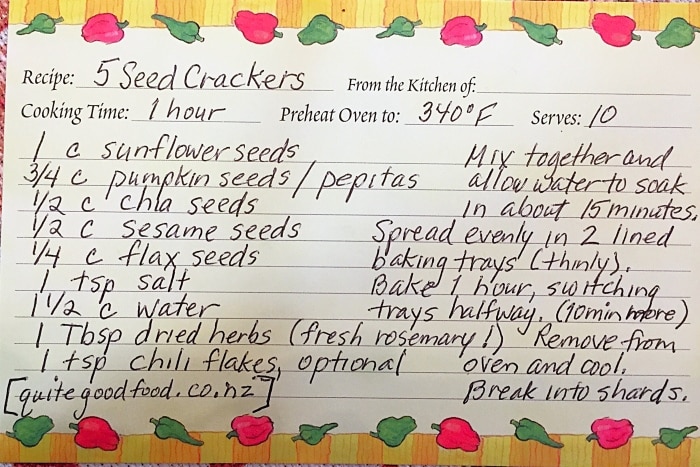 Recipe: 5 Seed Crackers From the Kitchen of:
Cooking Time: 1 hour Preheat Oven to: 340°F Serves: 10
1 c sunflower seeds
3/4 c pumpkin seeds / pepitas
1/2 c chia seeds
1/2 c sesame seeds
1/4 c flax seeds
1 tsp salt
1 1/2 c water
1 Tbsp dried herbs (fresh rosemary!)
1 tsp chili flakes, optional
[quitegoodfood.co.nz]
Mix together and
allow water to soak
in about 15 minutes.
Spread evenly in 2 lined
baking trays (thinly).
Bake 1 hour, switching
trays halfway. (10 min more)
Remove from
oven and cool.
Break into shards.